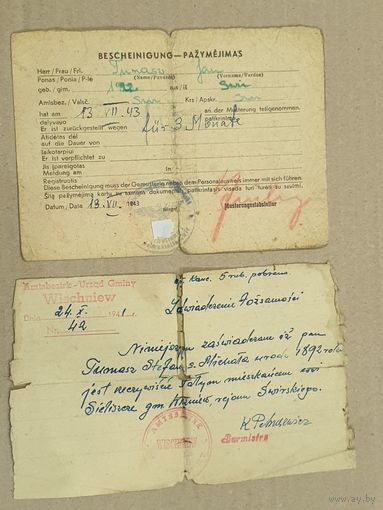 BESCHEINIGUNG—PAŽYMĖJIMAS
Herr / Frau / Frl. Tumasz Jan
Ponas / Ponia / P-lė (Name / Pavardė) (Vorname / Vardas)
geb./gim. 1922 aus / iš Swir
Amtsbez./ Valsč. Swir Krs / Apskr. Swir
hat am 13. VII. 43 an der Musterung teilgenommen.
dalyvavo patikrinime.
Er ist zurückgestellt wegen für 3 Monate
Atidėtas dėl
auf die Dauer von
laikotarpiui
Er ist verpflichtet zu
Jis įpareigotas
Meldung am
Registruotis
Diese Bescheinigung muss der Gemusterte neben dem Personalausweis immer mit sich führen.
Šitą pažymėjimą kartu su asmens dokumentu patikrintasis visada turi turėti su savimi.
Datum / Data 13. VII. 1943
Musterungsstabsleiter
Kanc. 5 rub. pobrano.
Amtsbezirk - Urząd Gminy
Wischniew
Dnia 24. X. 1941 r.
Nr. 42
Zaświadczenie Tożsamości
Niniejszym zaświadczam iż pan
Tumasz Stefan s. Michała urodz. 1892 roku
jest rzeczywiście stałym mieszkańcem wsi
Sieliszcze gm. Wiszniew, rejonu Świrskiego.
AMTSBEZIRK
WISCHNIEW
Burmistrz